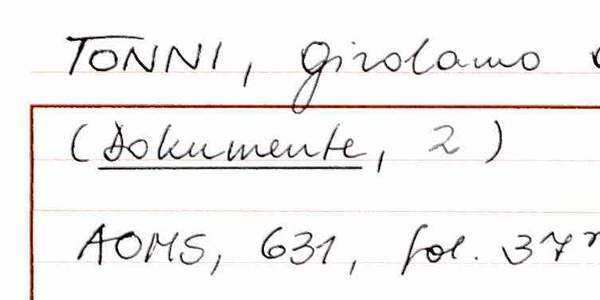 TONNI, Girolamo
(Dokumente, 2)
AOMS, 631, fol. 37r